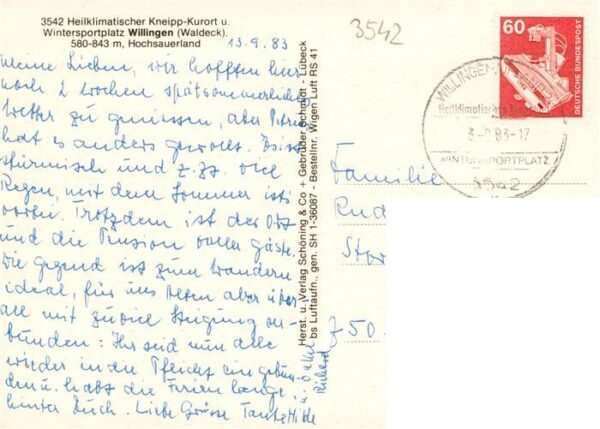 3542 Heilklimatischer Kneipp-Kurort u.
Wintersportplatz Willingen (Waldeck),
580-843 m, Hochsauerland
13.9.83
Meine Lieben, wir hofften hier
noch 2 Wochen spätsommerliches
Wetter zu geniessen, aber Petrus
hat es anders gewollt. Es ist
stürmisch und z.Zt. viel
Regen, mit dem Sommer ist's
vorbei. Trotzdem ist der Ort
und die Pension voller Gäste.
Die Gegend ist zum Wandern
ideal, für uns Alten aber über-
all mit zuviel Steigung ver-
bunden. Ihr seid nun alle
wieder in die Pflicht eingebun-
den u. habt die Ferien lange
hinter Euch. Liebe Grüsse Tante Hilde
u. Onkel
Richard
Herst. u. Verlag Schöning & Co + Gebrüder Schmidt - Lübeck
bs Luftaufn., gen. SH 1-36087 - Bestellnr. Wigen Luft RS 41
3542
60
DEUTSCHE BUNDESPOST
WILLINGEN
Heilklimatischer
83-17
WINTERSPORTPLATZ
3542
Familie
Rud
750